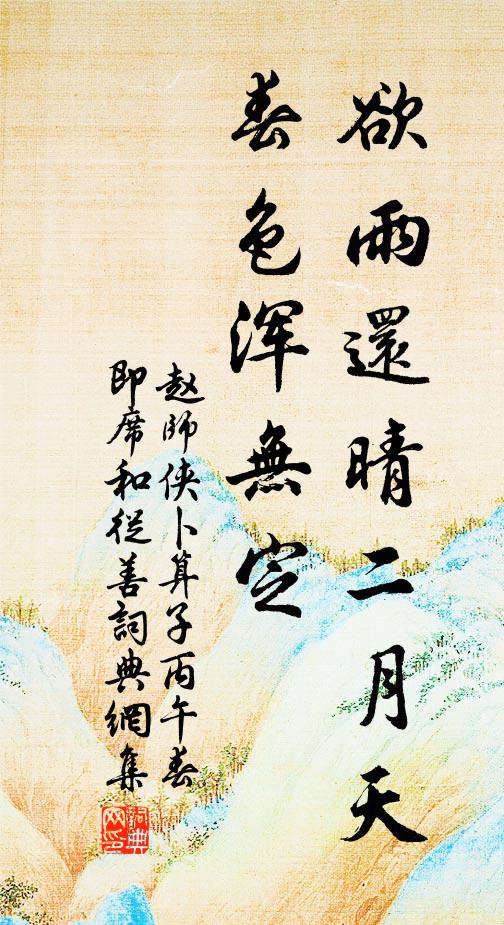 欲雨還晴二月天
春色浑無定
赵師侠卜算子丙午春
即席和從善詞典網集
詞典
网印